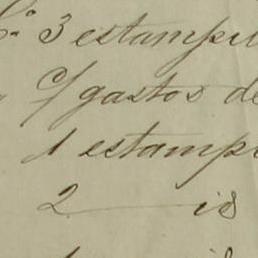 3 estampi
c/ gastos de
1 estamp
2 id